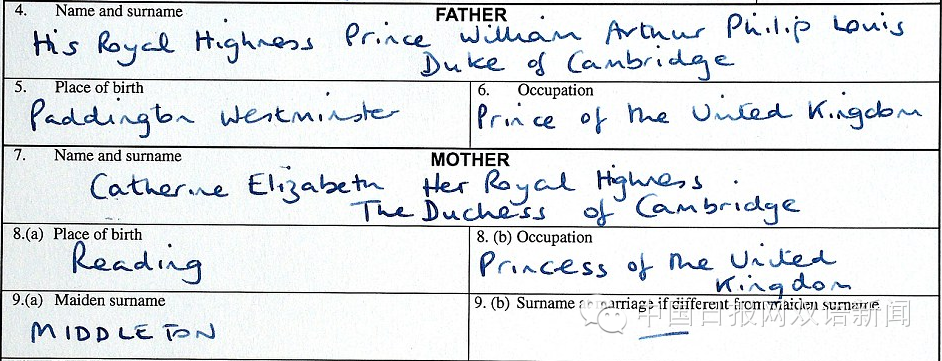 4. Name and surname FATHER
His Royal Highness Prince William Arthur Philip Louis
Duke of Cambridge
5. Place of birth
Paddington Westminster
6. Occupation
Prince of the United Kingdom
7. Name and surname MOTHER
Catherine Elizabeth Her Royal Highness
The Duchess of Cambridge
8.(a) Place of birth
Reading
8. (b) Occupation
Princess of the United
Kingdom
9.(a) Maiden surname
MIDDLETON
9. (b) Surname at marriage if different from maiden surname
中国日报网双语新闻